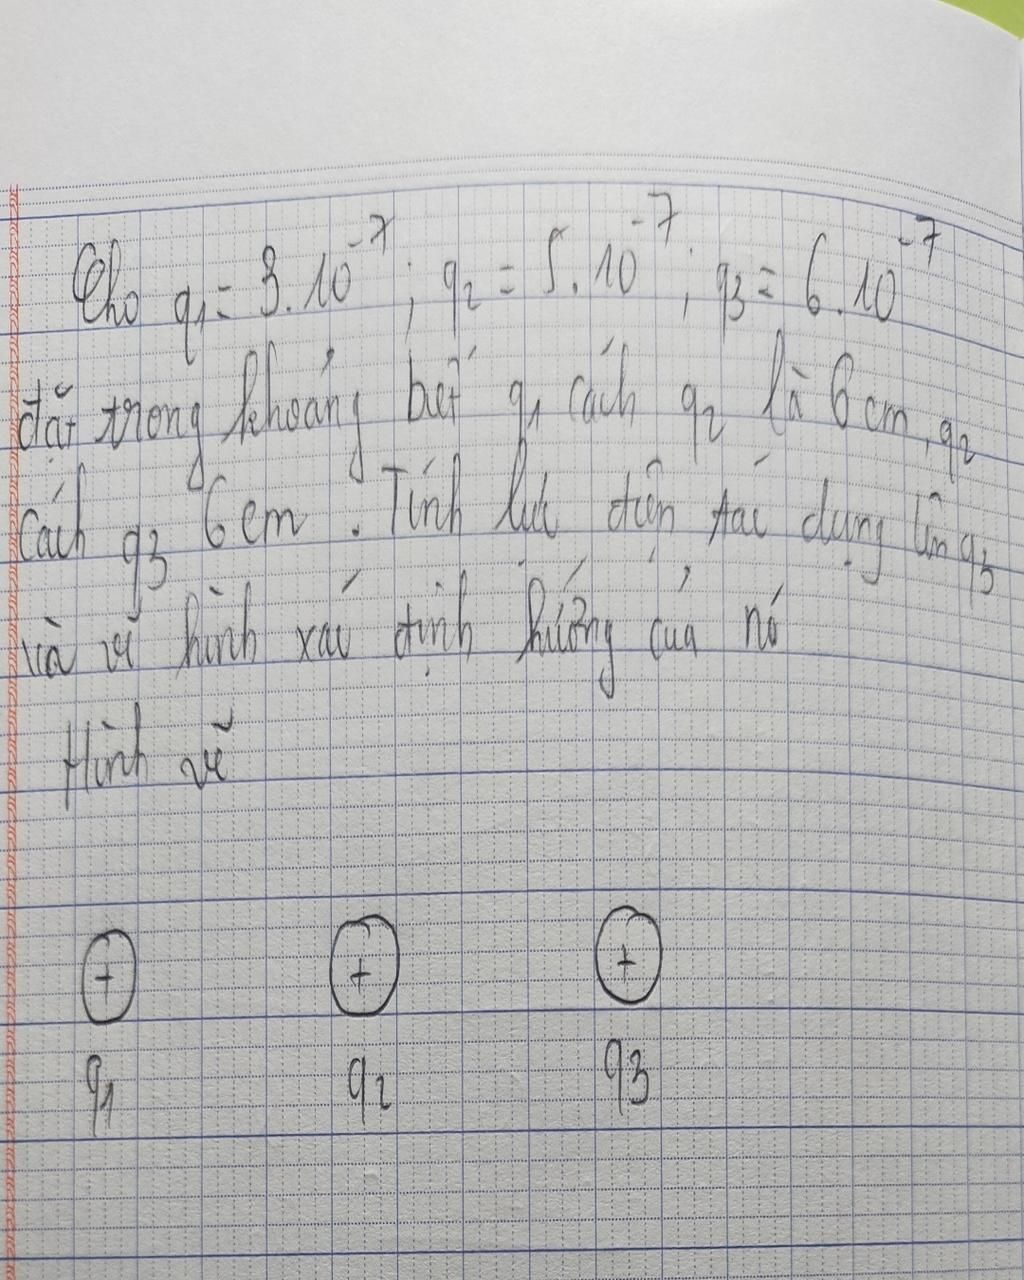 Cho q1 = 3.10^-7 ; q2 = 5.10^-7 ; q3 = 6.10^-7
đặt trong khoảng biết q1 cách q2 là 6 cm, q2
cách q3 6 cm. Tính lực điện tác dụng lên q3
và vẽ hình xác định hướng của nó
Hình vẽ
+ + +
q1 q2 q3